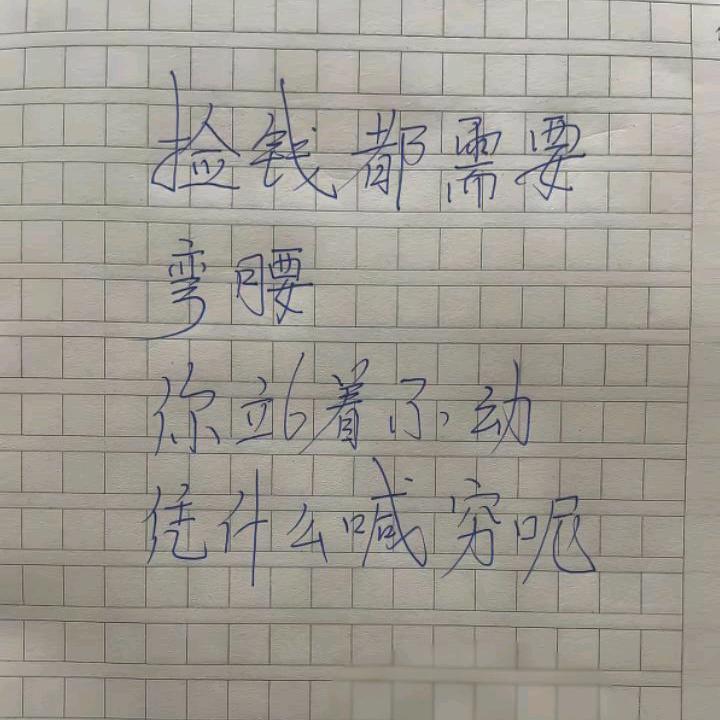 捡钱都需要
弯腰
你站着不动
凭什么喊穷呢